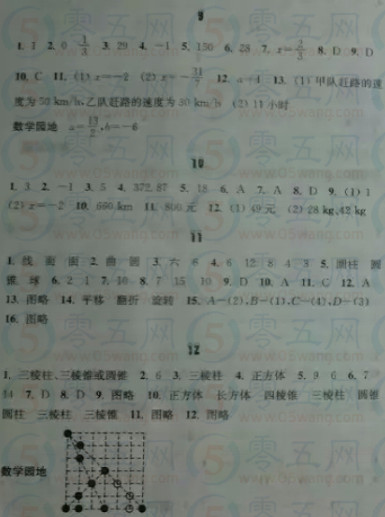 9
1. 1 2. 0 1/3 3. 29 4. -1 5. 150 6. 28 8. D 9. D
10. C 11. (1) x=-2 (2) 12. a=4 13. (1) 甲队赶路的速
度为 km/h,乙队赶路的速度为 km/h (2) 11 小时
数学园地 a=13/2,b=-6
10
1. 3 2. -1 3. 5 4. 372.87 5. 18 6. A 7. A 8. D 9. (1) 1
(2) x=-2 10. 660 km 11. 800 元 12. (1) 元 (2) 28 kg,42 kg
11
1. 线 面 面 2. 曲 圆 3. 六 6 4. 6 12 8 4 3 5. 圆柱 圆
锥 球 6. 2 1 7. 10 8. 7 15 10 9. D 10. A 11. C 12. A
13. 图略 14. 平移 翻折 旋转 15. A—(2),B—(1),C—(4),D—(3)
16. 图略
12
1. 三棱柱、三棱锥或圆锥 2. 6 3. 三棱柱 4. 正方体 5. 9 6 6. 7
14 7. D 8. D 9. 图略 10. 正方体 长方体 四棱锥 三棱柱 圆锥
圆柱 三棱柱 三棱锥 11. 图略 12. 图略
数学园地
零五网
www.05wang.com